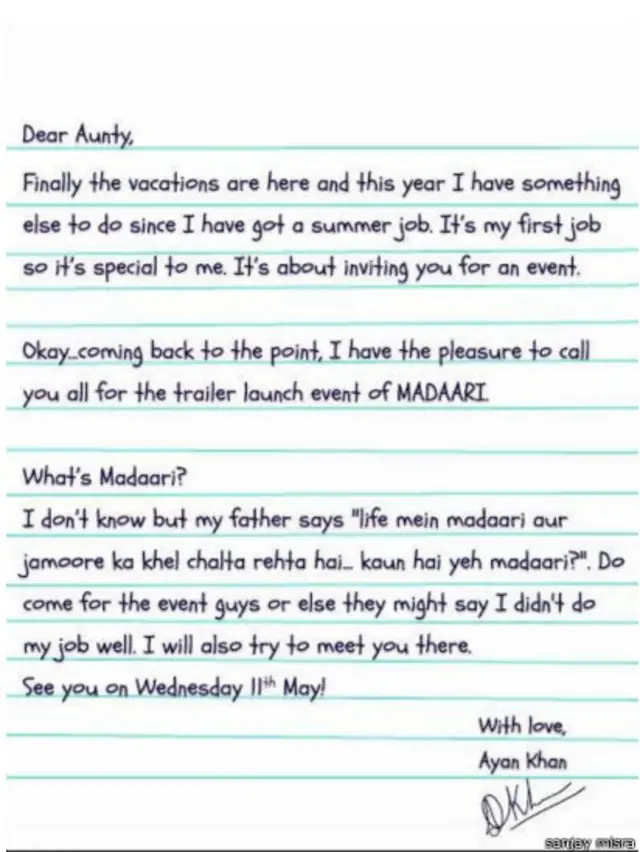 Dear Aunty,
Finally the vacations are here and this year I have something
else to do since I have got a summer job. It's my first job
so it's special to me. It's about inviting you for an event.
Okay...coming back to the point, I have the pleasure to call
you all for the trailer launch event of MADAARI.
What's Madaari?
I don't know but my father says "life mein madaari aur
jamoore ka khel chalta rehta hai... kaun hai yeh madaari?". Do
come for the event guys or else they might say I didn't do
my job well. I will also try to meet you there.
See you on Wednesday 11th May!
With love,
Ayan Khan
sanjay misra